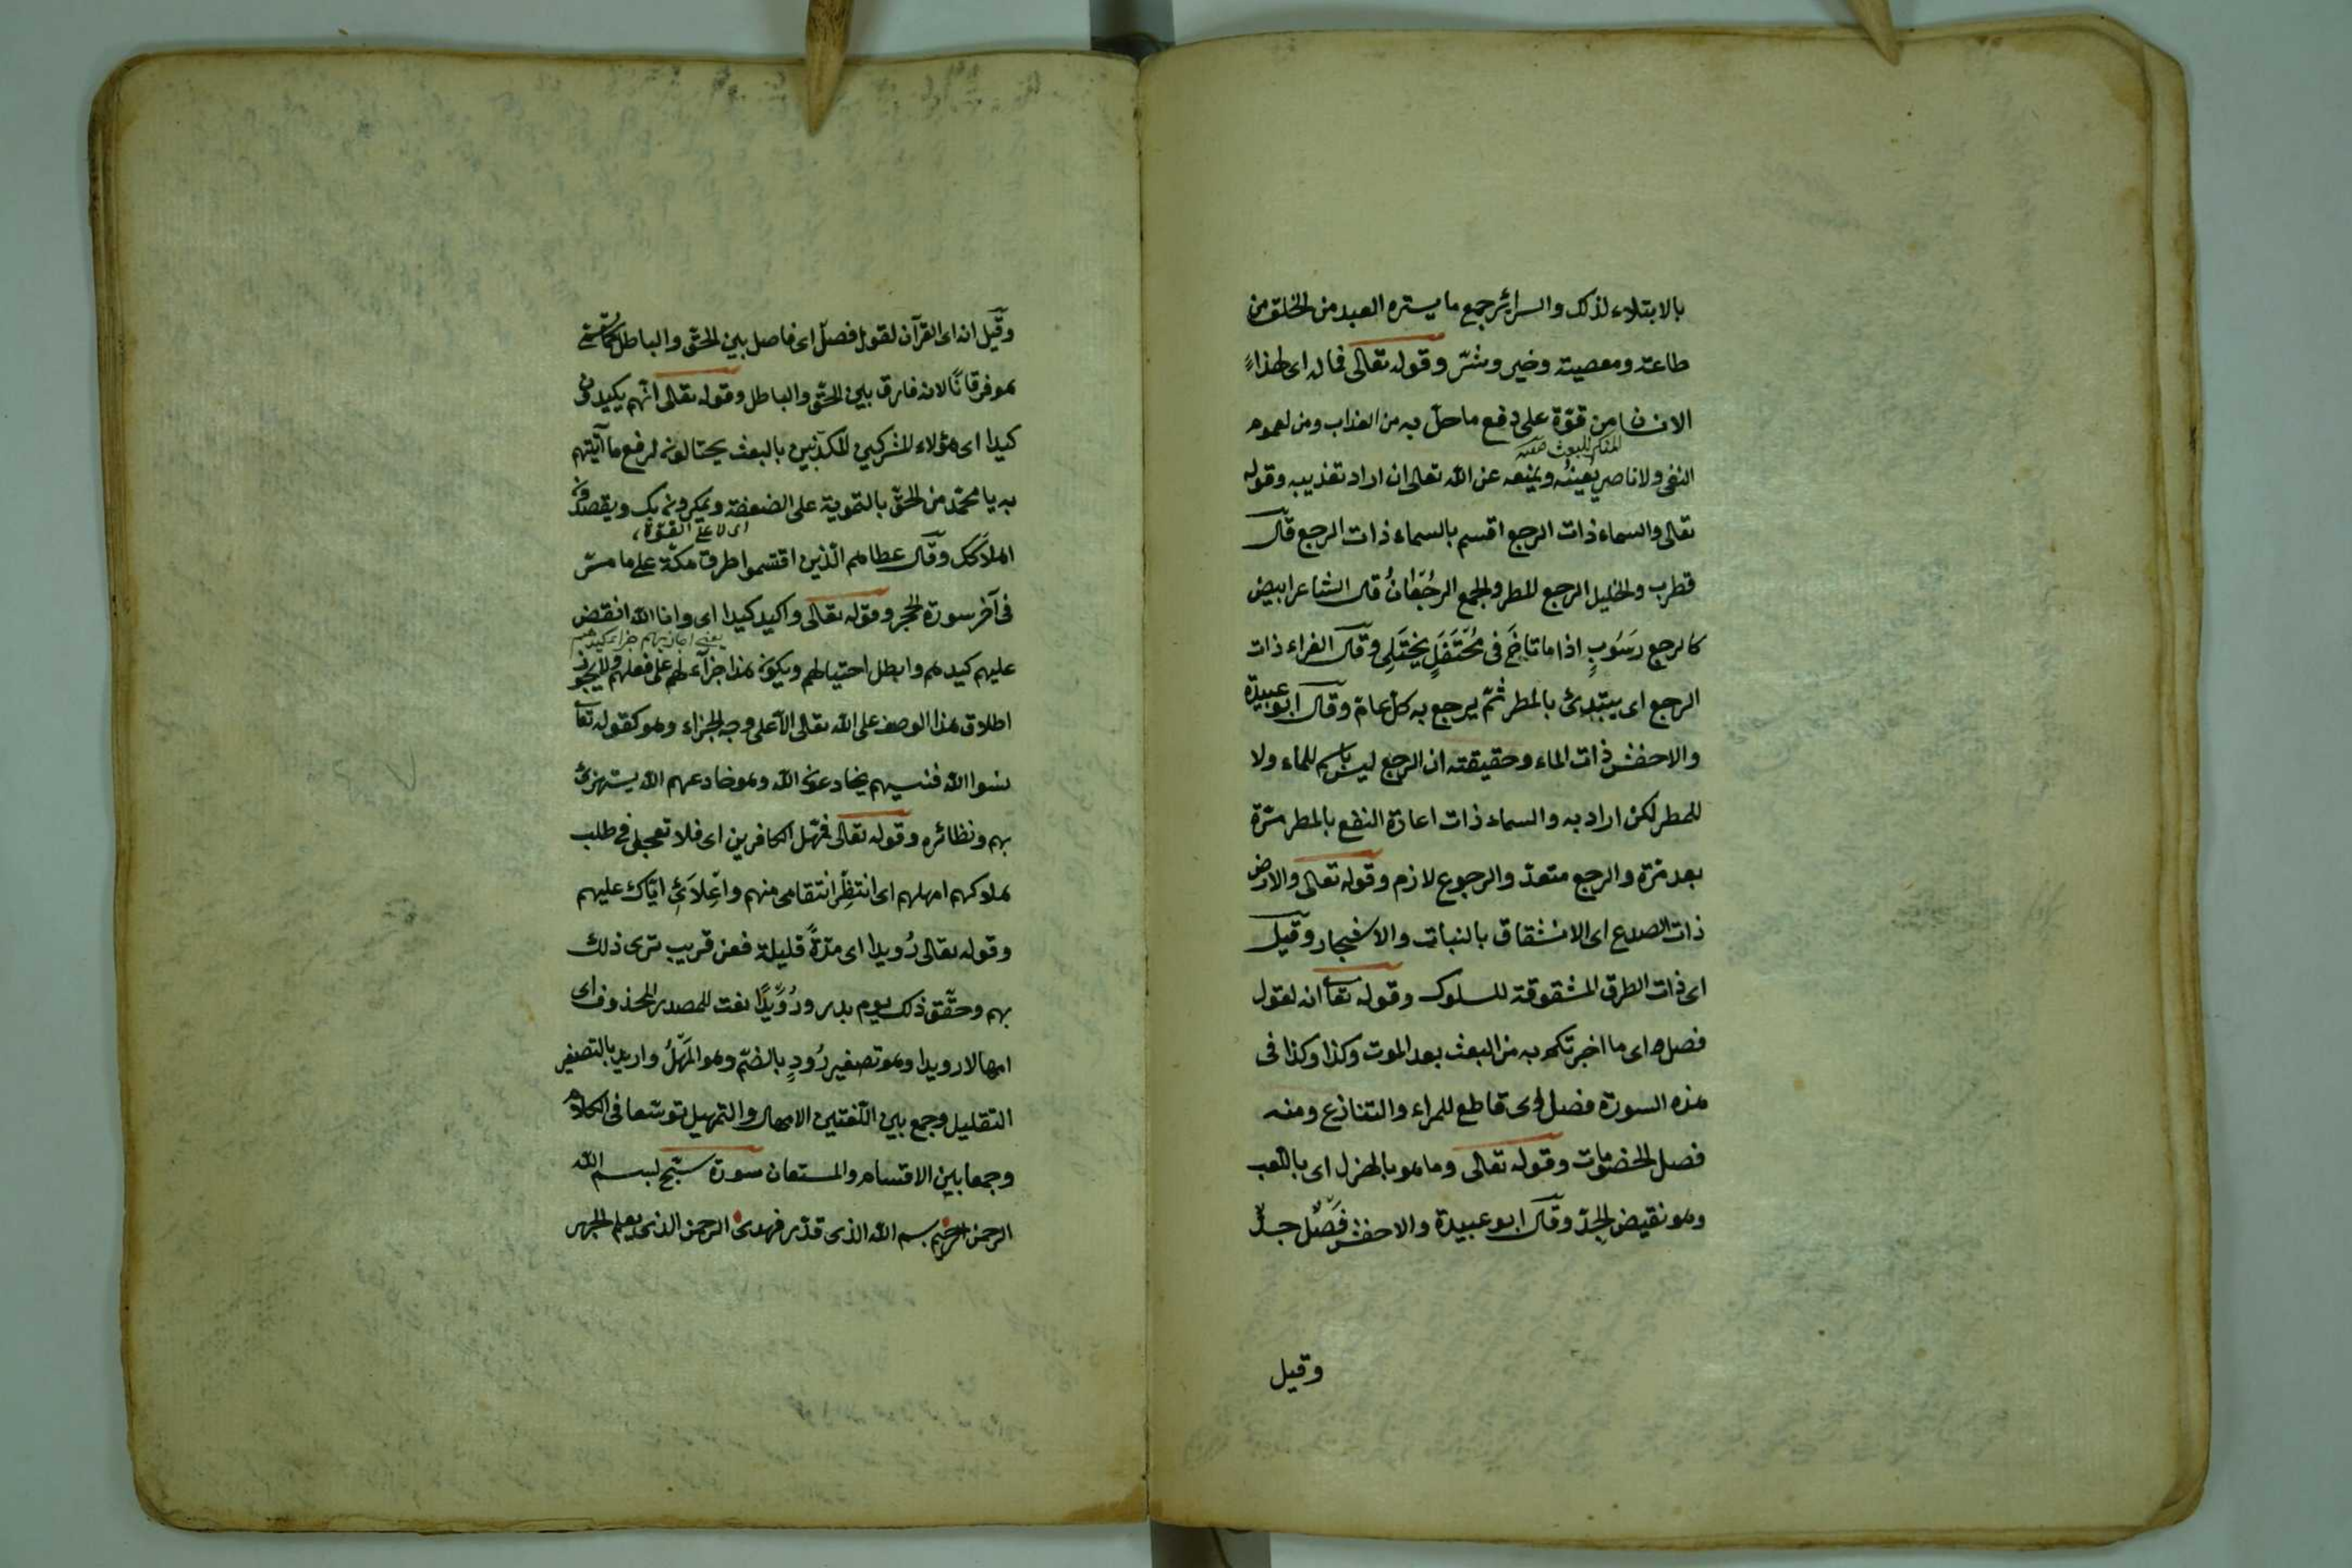 بالابتلاء لذلك والسرائر جمع ما يستره العبد من الخلق من
طاعة ومعصية وخير وشرّ وقوله تعالى فماله اى لهذا
الانسان من قوّة على دفع ما حلّ به من العذاب ومن لعموم
المنكر للبعث
النفى ولا ناصر يُعينُه ويمنعه عن الله تعالى ان اراد تعذيبه وقوله
تعالى والسماء ذات الرجع اقسم بالسماء ذات الرجع قال
قطرب والخليل الرجع المطر والجمع الرُجْعَانُ قال الشاعر ابيض
كالرجع رَسُوبٍ اذا ما ثاخَ فى مُحْتَفَلٍ يَخْتَلِى وقال الفراء ذات
الرجع اى يبتدئ بالمطر ثمّ يرجع به كلّ عام وقال ابو عبيدة
والاخفش ذات الماء وحقيقته ان الرجع ليس باسم للماء ولا
للمطر لكن اراد به والسماء ذات اعادة النفع بالمطر مرّة
بعد مرّة والرجع متعدّ والرجوع لازم وقوله تعالى والارض
ذات الصدع اى الانشقاق بالنبات والاشجار وقيل
اى ذات الطرق المشقوقة للسلوك وقوله تعا انه لقول
فصل اى ما اخبرتكم به من البعث بعد الموت وكذا وكذا فى
هذه السورة فصل اى قاطع للمراء والتنازع ومنه
فصل الخصومات وقوله تعالى وما هو بالهزل اى باللعب
وهو نقيض الجِدّ وقال ابو عبيدة والاخفش فَصْلٌ جدٌّ
وقيل
وقيل انه اى القرآن لقول فصل اى فاصل بين الحق والباطل كما سمّى
هو فرقانًا لانه فارق بين الحق والباطل وقوله تعالى انّهم يكيدون
كيدا اى هؤلاء المشركين المكذّبين بالبعث يحتالون لدفع ما آتيتهم
به يا محمّد من الحقّ بالتمويه على الضعفة ويمكرون بك ويقصدون
اى لاعلى القوة
اهلاكك وقال عطا هم الّذين اقتسموا طرق مكّة على ما مرّ
فى آخر سورة الحجر وقوله تعالى واكيد كيدا اى وانا الله انقض
يعنى اجازيهم جزاء كيدهم
عليهم كيدهم وابطل احتيالهم ويكون هذا جزآء لهم على فعلهم ولا يجوز
اطلاق هذا الوصف على الله تعالى الا على وجه الجزاء وهو كقوله تعا
نسوا الله فنسيهم يخادعون الله وهو خادعهم الله يستهزئ
بهم ونظائره وقوله تعالى فمهّل الكافرين اى فلا تعجل فى طلب
هلاكهم امهلهم اى انتظِر انتقامى منهم واعْلائى ايّاك عليهم
وقوله تعالى رُويدا اى مدّةً قليلة فعن قريب ترى ذلك
بهم وحقّق ذلك يوم بدر ورُوَيْدًا نعت للمصدر المحذوف اى
امهالا رويدا وهو تصغير رُودٍ بالضمّ وهو المَهْلُ واريد بالتصغير
التقليل وجمع بين اللّغتين الامهال والتمهيل توسّعا فى الكلام
وجمعا بين الاقسام والمستعان سورة سبّح بسم الله
الرحمن الرحيم بسم الله الذى قدّر فهدى الرحمن الذى يعلم الجهر